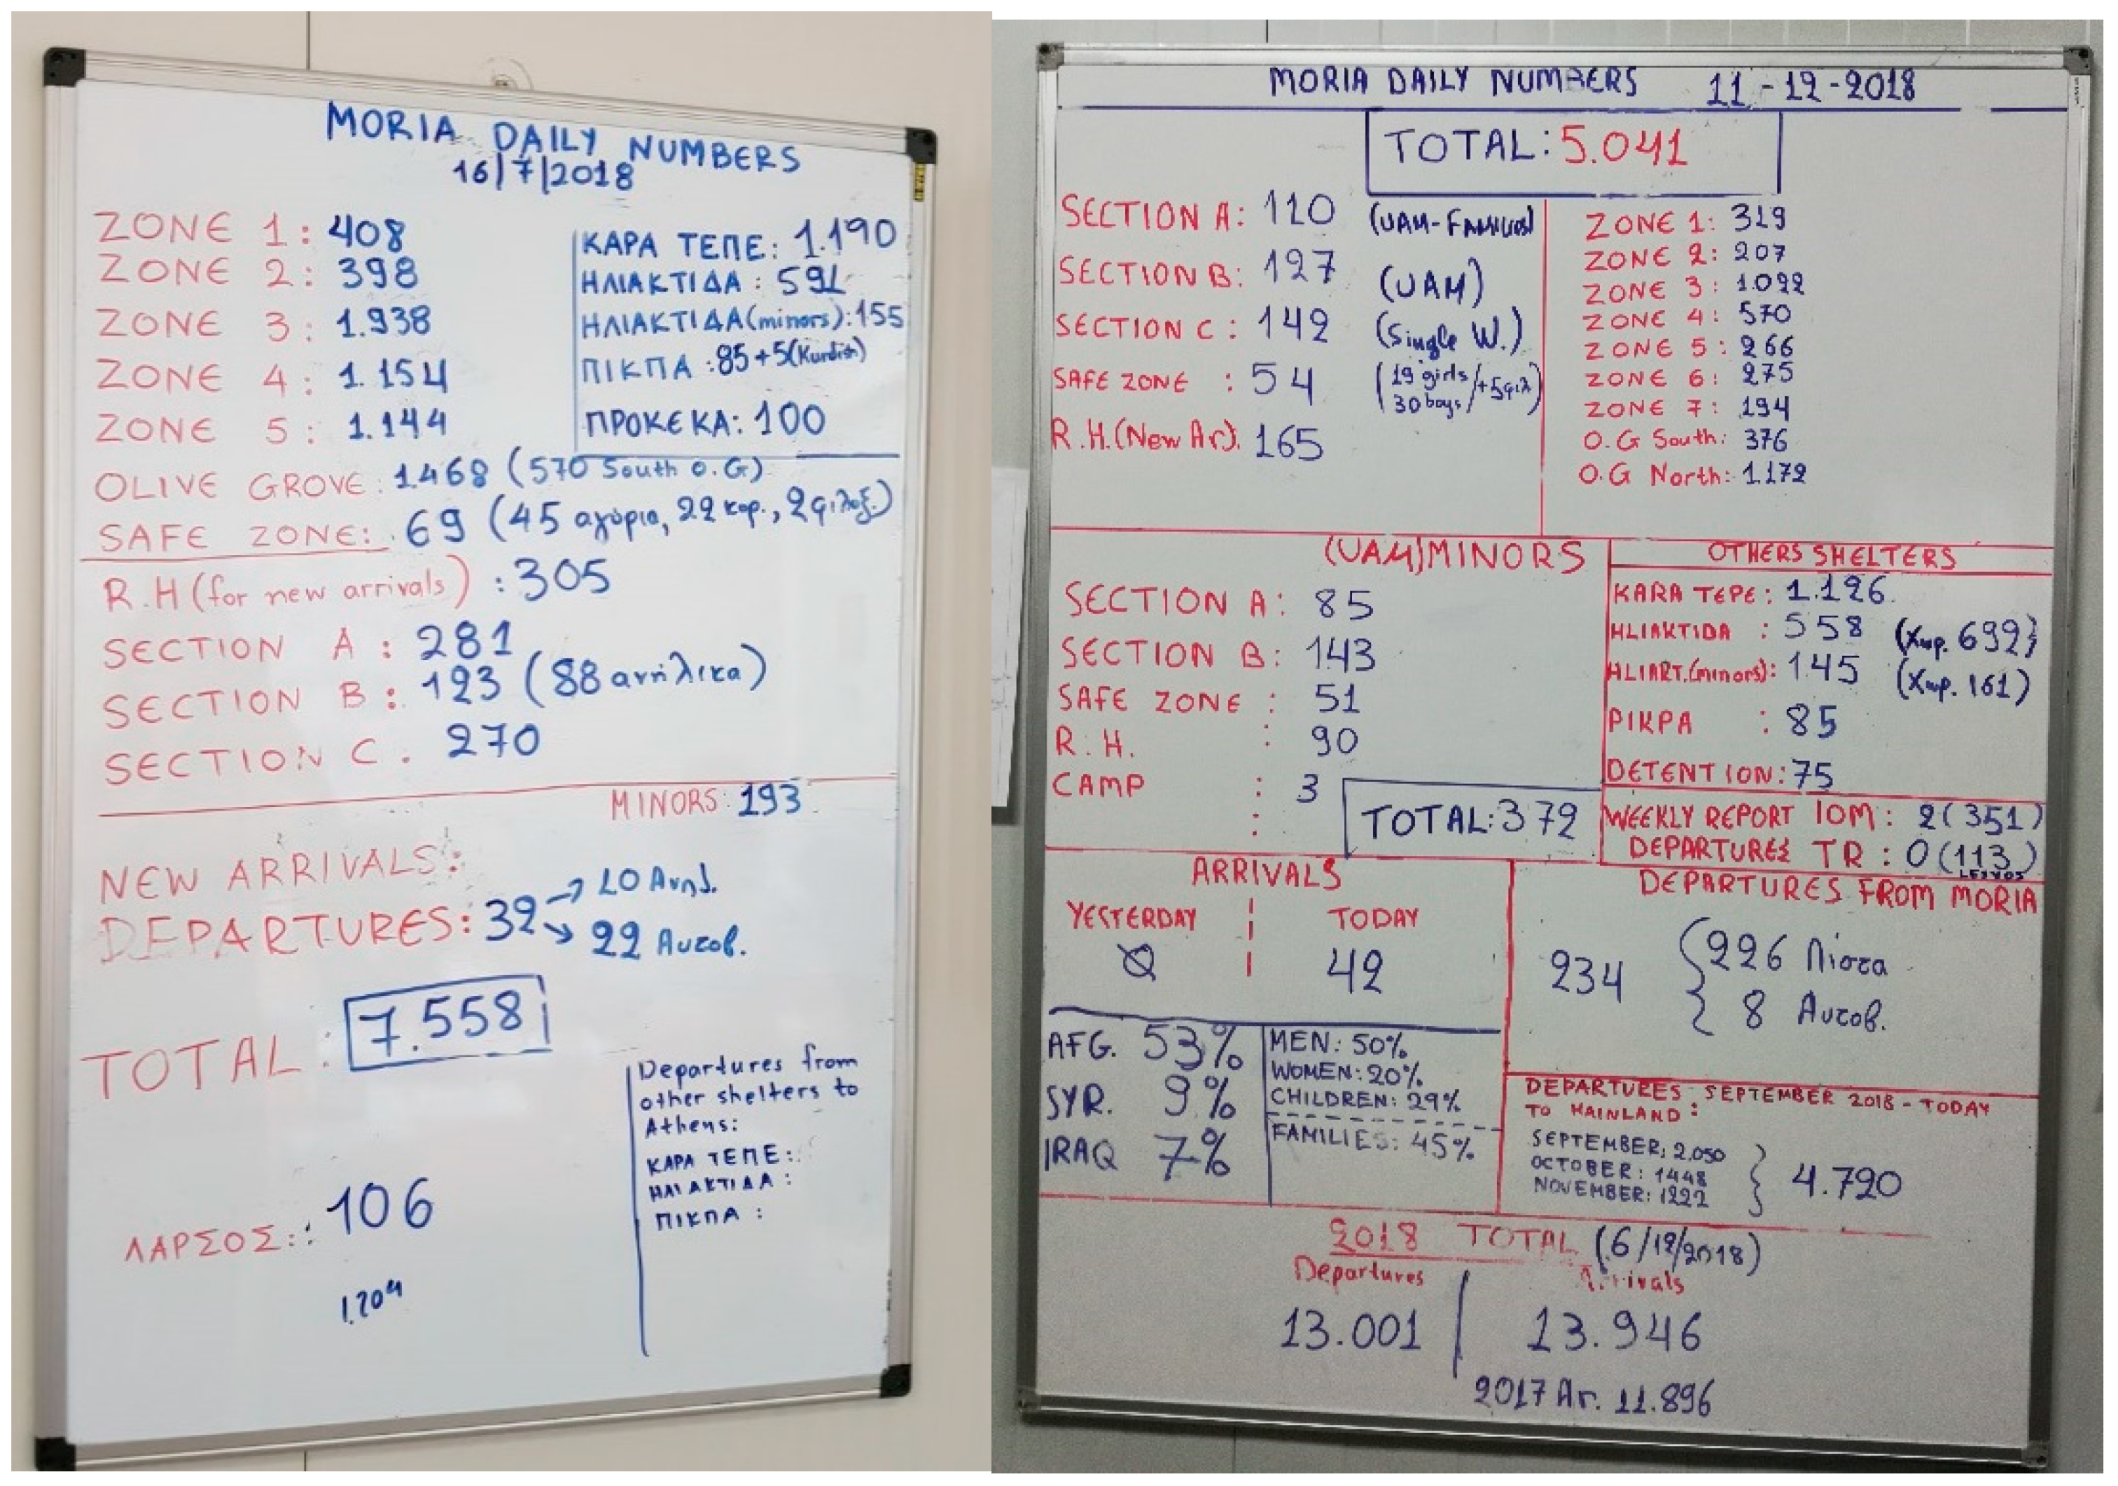 MORIA DAILY NUMBERS
16/7/2018
ZONE 1: 408
ZONE 2: 398
ZONE 3: 1.938
ZONE 4: 1.154
ZONE 5: 1.144
ΚΑΡΑ ΤΕΠΕ: 1.190
ΗΛΙΑΚΤΙΔΑ: 591
ΗΛΙΑΚΤΙΔΑ(minors): 155
ΠΙΚΠΑ: 85+5(Kurdish)
ΠΡΟΚΕΚΑ: 100
OLIVE GROVE: 1.468 (570 South O.G)
SAFE ZONE: 69 (45 αγόρια, 22 κορ., 2 φιλοξ.)
R.H (for new arrivals): 305
SECTION A: 281
SECTION B: 123 (88 ανήλικα)
SECTION C. 270
MINORS: 193
NEW ARRIVALS:
DEPARTURES: 32 → 10 Ανηλ.
→ 22 Αυτοβ.
TOTAL: 7.558
Departures from
other shelters to
Athens:
ΚΑΡΑ ΤΕΠΕ:
ΗΛΙΑΚΤΙΔΑ:
ΠΙΚΠΑ:
ΛΑΡΣΟΣ: 106
MORIA DAILY NUMBERS 11-12-2018
TOTAL: 5.041
SECTION A: 110 (UAM-FAMILIES)
SECTION B: 127 (UAM)
SECTION C: 142 (Single W.)
SAFE ZONE: 54 (19 girls/+5 φιλ)
30 boys
R.H.(New Ar). 165
ZONE 1: 319
ZONE 2: 207
ZONE 3: 1.022
ZONE 4: 570
ZONE 5: 266
ZONE 6: 275
ZONE 7: 194
O.G South: 376
O.G North: 1.172
(UAM)MINORS
SECTION A: 85
SECTION B: 143
SAFE ZONE: 51
R.H. : 90
CAMP : 3
TOTAL: 372
OTHERS SHELTERS
KARA TEPE: 1.126
HLIAKTIDA: 558 (Χωρ. 692)
HLIART.(minors): 145 (Χωρ. 161)
PIKPA : 85
DETENTION: 75
WEEKLY REPORT IOM: 2(351)
DEPARTURES TR: 0(113)
LESVOS
ARRIVALS
YESTERDAY TODAY
Ø 42
DEPARTURES FROM MORIA
234 { 226 Πίστα
8 Αυτοβ.
AFG. 53%
SYR. 9%
IRAQ 7%
MEN: 50%
WOMEN: 20%
CHILDREN: 29%
FAMILIES: 45%
DEPARTURES: SEPTEMBER 2018 - TODAY
TO MAINLAND:
SEPTEMBER: 2.050
OCTOBER: 1448
NOVEMBER: 1222
} 4.720
2018 TOTAL (6/12/2018)
Departures Arrivals
13.001 | 13.946
2017 Ar. 11.896